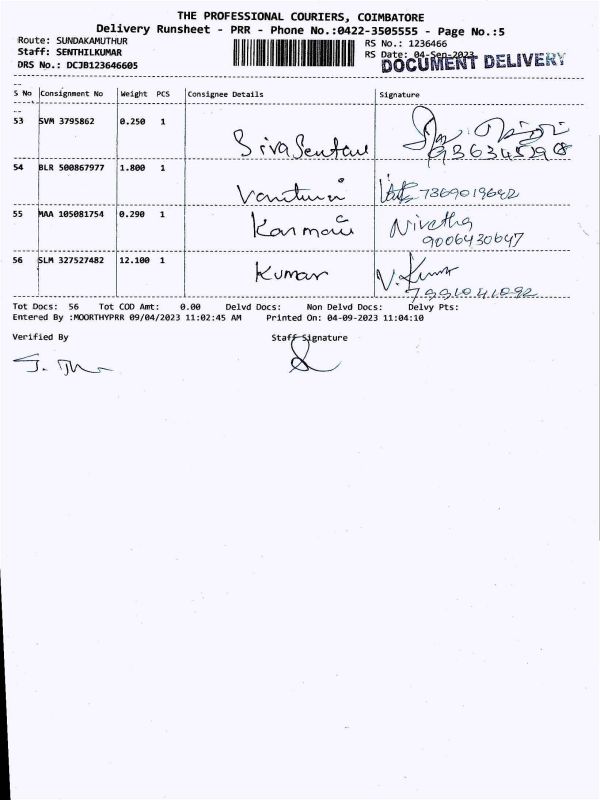 THE PROFESSIONAL COURIERS, COIMBATORE
Delivery Runsheet - PRR - Phone No.:0422-3505555 - Page No.:5
Route: SUNDAKAMUTHUR RS No.: 1236466
Staff: SENTHILKUMAR RS Date: 04-Sep-2023
DRS No.: DCJB123646605 DOCUMENT DELIVERY
S No Consignment No Weight PCS Consignee Details Signature
53 SVM 3795862 0.250 1
54 BLR 500867977 1.800 1
7369019692
55 MAA 105081754 0.290 1 Nivetha
9006430647
56 SLM 327527482 12.100 1 Kumar V. Kumar
7991041092
Tot Docs: 56 Tot COD Amt: 0.00 Delvd Docs: Non Delvd Docs: Delvy Pts:
Entered By :MOORTHYPRR 09/04/2023 11:02:45 AM Printed On: 04-09-2023 11:04:10
Verified By Staff Signature